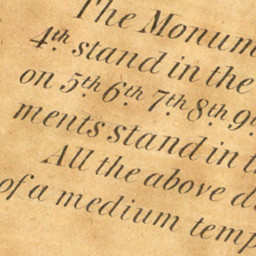 The Monum
4th stand in the
on 5th 6th 7th 8th 9
ments stand in t
All the above d
of a medium temp